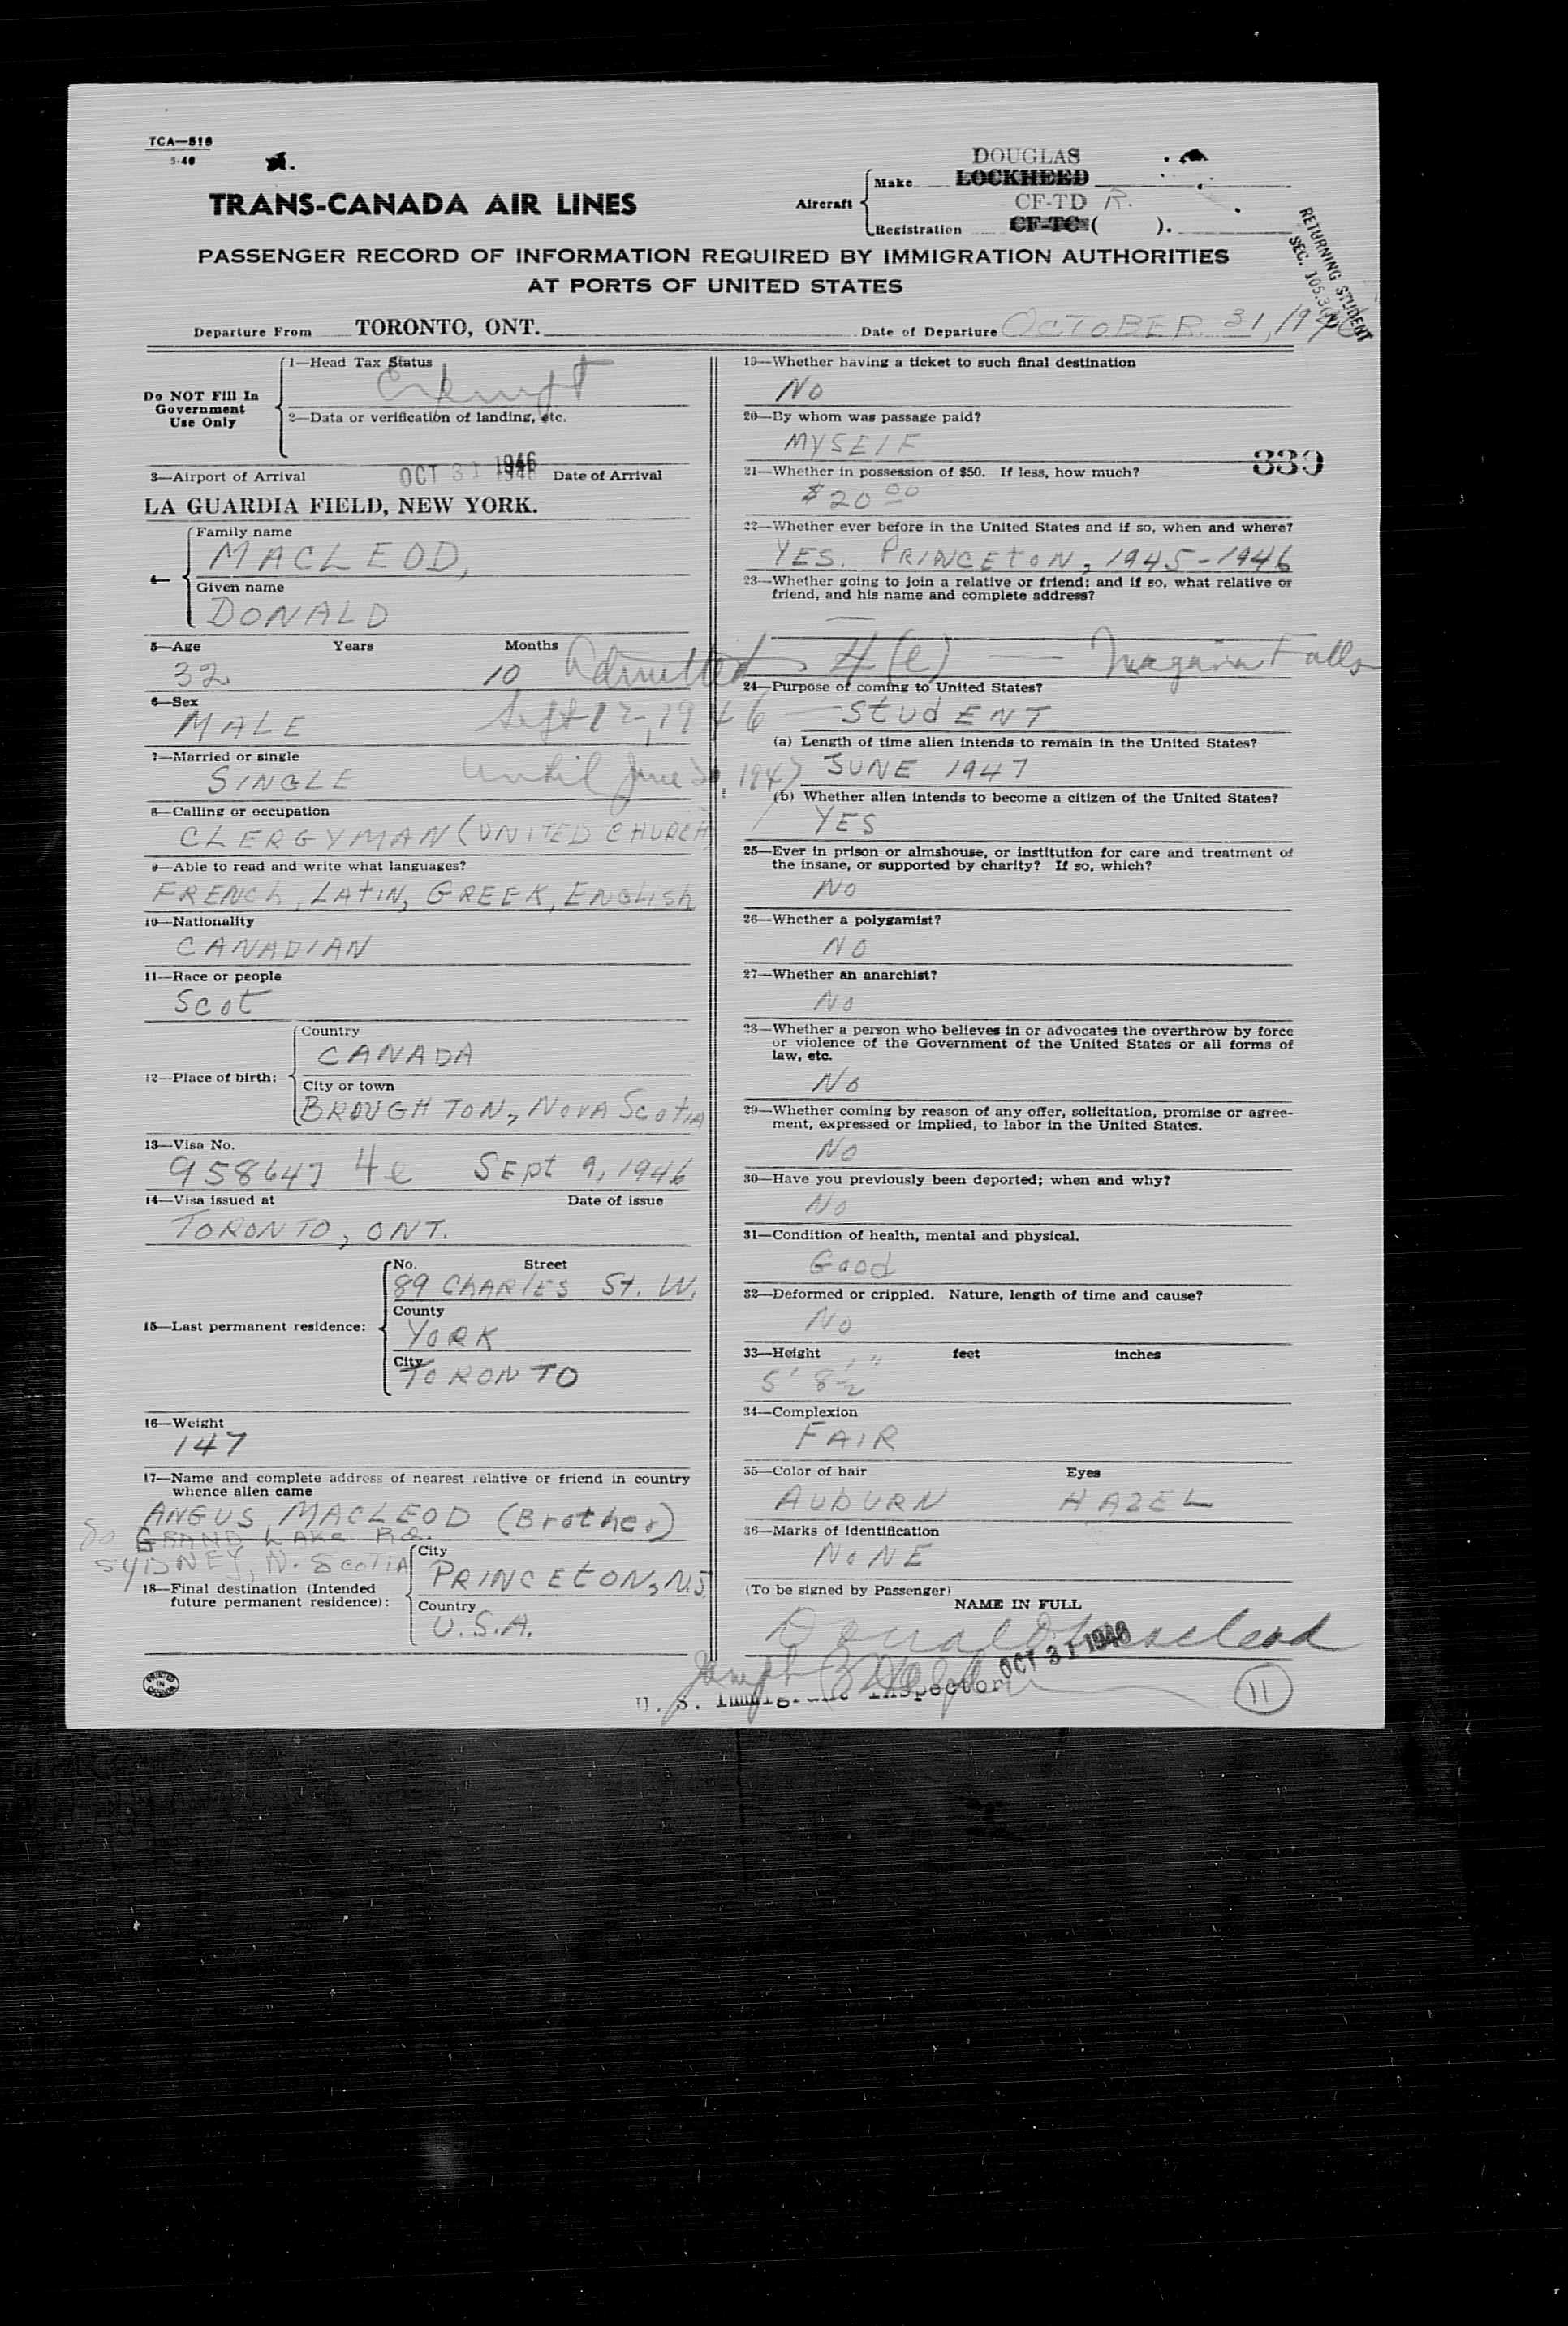 TCA—516
5-46
TRANS-CANADA AIR LINES
Aircraft
Make
DOUGLAS
LOCKHEED
CF-TD R.
Registration CF-TC ( ).
PASSENGER RECORD OF INFORMATION REQUIRED BY IMMIGRATION AUTHORITIES
AT PORTS OF UNITED STATES
RETURNING STUDENT
Departure From TORONTO, ONT. Date of Departure OCTOBER 31, 1946
Do NOT Fill In
Government
Use Only
1—Head Tax Status
Exempt
2—Data or verification of landing, etc.
3—Airport of Arrival OCT 31 1946 Date of Arrival
LA GUARDIA FIELD, NEW YORK.
4—
Family name
MACLEOD,
Given name
DONALD
5—Age Years Months
32 10
Admitted 4(e) — Niagara Falls
Sept 12, 1946
until June 30, 1947
6—Sex
MALE
7—Married or single
SINGLE
8—Calling or occupation
CLERGYMAN (UNITED CHURCH)
9—Able to read and write what languages?
FRENCh, LAtIN, GREEK, ENGLISh
10—Nationality
CANADIAN
11—Race or people
Scot
12—Place of birth:
Country
CANADA
City or town
BROUGHTON, NOVA ScotIA
13—Visa No.
958647 4e SEpt 9, 1946
14—Visa issued at Date of issue
TORONTO, ONT.
15—Last permanent residence:
No. Street
89 ChARlES St. W.
County
YORK
City
TORONTO
16—Weight
147
17—Name and complete address of nearest relative or friend in country
whence alien came
ANGUS MACLEOD (Brother)
80 GRAND LAKe Rd.
SYDNEY, N. ScoTIA
18—Final destination (Intended
future permanent residence):
City
PRINCEtON, N.J.
Country
U.S.A.
PRINTED
IN
CANADA
19—Whether having a ticket to such final destination
No
20—By whom was passage paid?
MYSELF
339
21—Whether in possession of $50. If less, how much?
$20.00
22—Whether ever before in the United States and if so, when and where?
YES. PRINCEtON, 1945-1946
23—Whether going to join a relative or friend; and if so, what relative or
friend, and his name and complete address?
—
24—Purpose of coming to United States?
StUdENT
(a) Length of time alien intends to remain in the United States?
JUNE 1947
(b) Whether alien intends to become a citizen of the United States?
YES
25—Ever in prison or almshouse, or institution for care and treatment of
the insane, or supported by charity? If so, which?
No
26—Whether a polygamist?
NO
27—Whether an anarchist?
No
28—Whether a person who believes in or advocates the overthrow by force
or violence of the Government of the United States or all forms of
law, etc.
No
29—Whether coming by reason of any offer, solicitation, promise or agree-
ment, expressed or implied, to labor in the United States.
No
30—Have you previously been deported; when and why?
No
31—Condition of health, mental and physical.
Good
32—Deformed or crippled. Nature, length of time and cause?
No
33—Height feet inches
5' 8½"
34—Complexion
FAIR
35—Color of hair Eyes
AUBURN HAZEL
36—Marks of identification
NoNE
(To be signed by Passenger)
NAME IN FULL
Donald Macleod
OCT 31 1946
Joseph
U. S. Immigrant Inspector
11